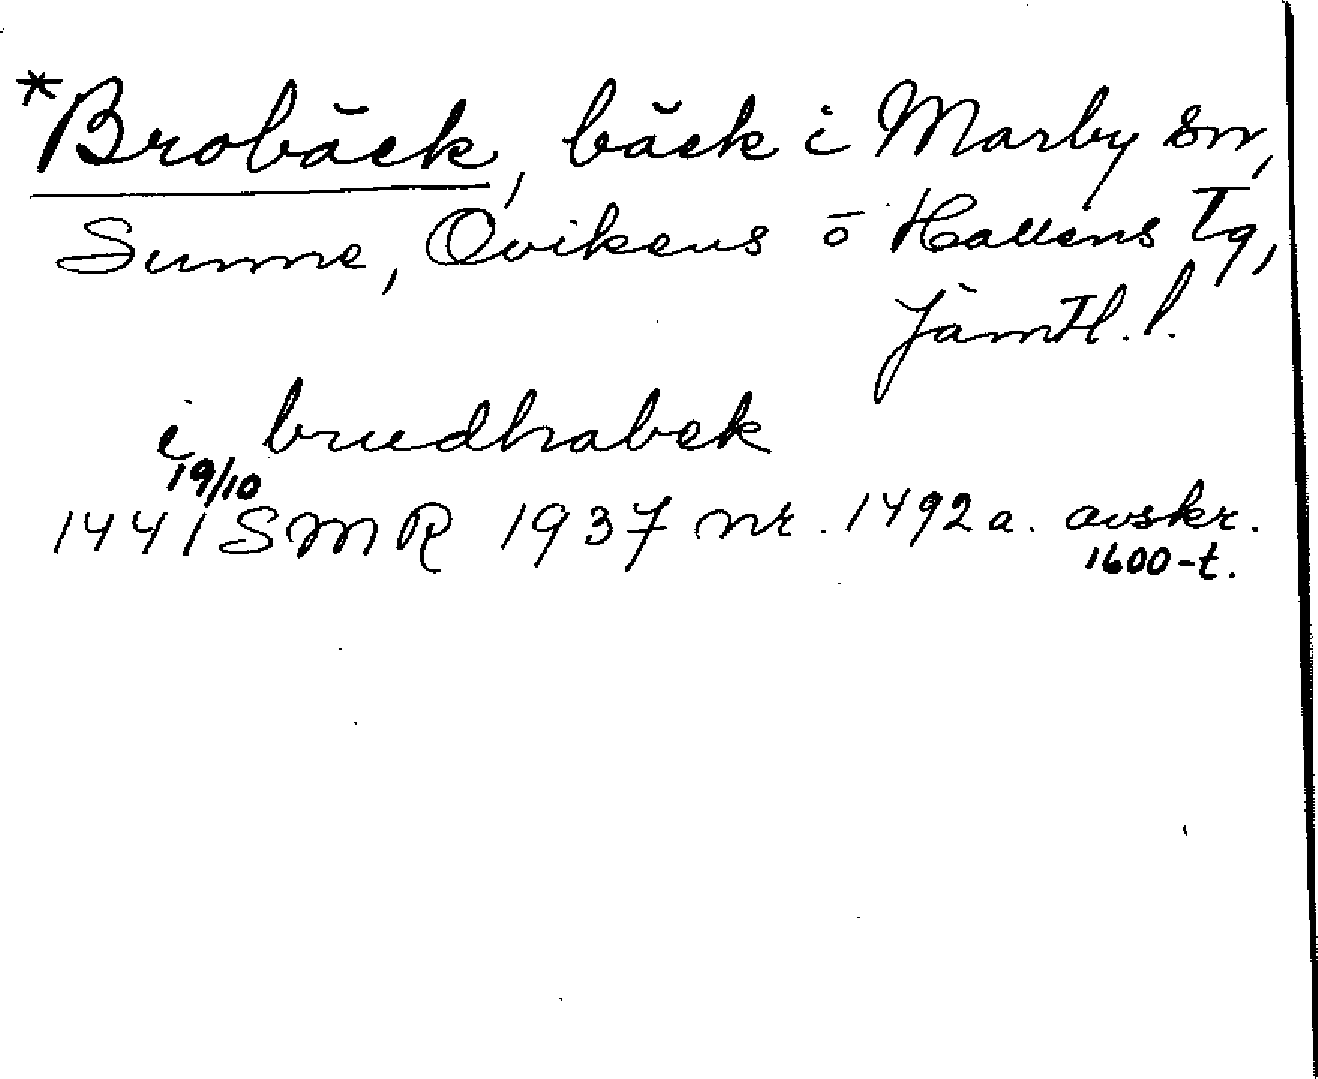 *Brobäck, bäck i Marby sn,
Sunne, Ovikens o Hallens Tg,
Jämtl. l.
i brudhrabek
19/10
1441 SMR 1937 nr. 1492 a. avskr.
1600-t.